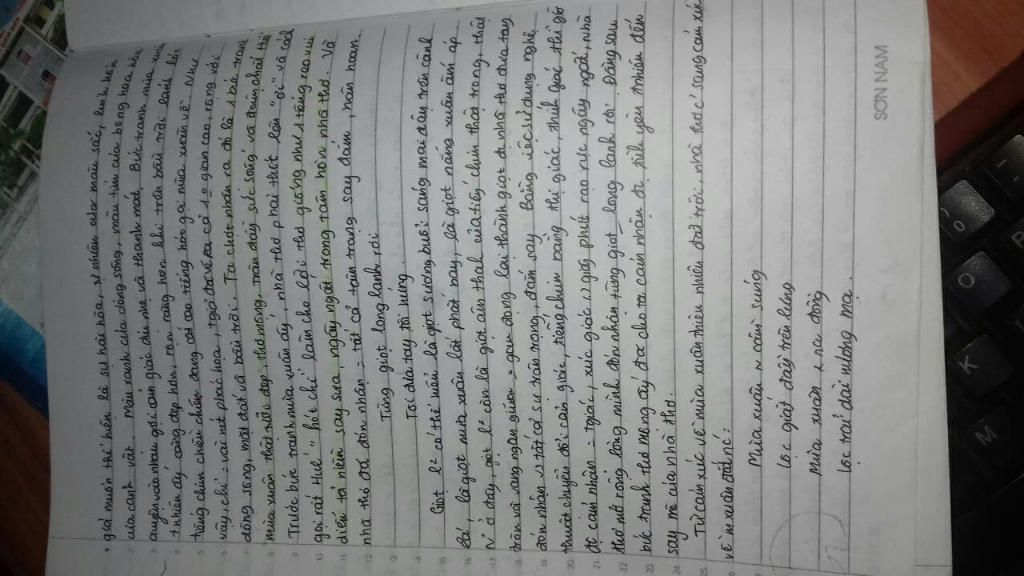 giả muốn thể hiện là sự hài hòa, ~ nhiên color màu sắc, linh hồn
của cảnh vật. Màu xanh của dòng sông, màu tím của bông hoa hòa
quyện vào nhau gợi cảm giác dịu nhẹ và thanh mát. Bức tranh mùa xuân
t nhiên ấy càng đẹp hơn, rộn ràng hơn khi trên bầu trời xanh
tiếng chim chiền chiện đang cất cao tiếng hót gọi mùa xuân về. Như
vậy, chỉ = vài nét phác họa, tgiả đã vẽ ra cả 1 o gian cao, rộng với
dòng sông, mặt đất và bầu trời. Ta chợt nhận ra đó là 1 bức tranh
mùa xuân thật nước đẹp, thơ mộng, tràn đầy sức sống và đậm chất Huế
Trước bức tranh mùa xuân ấy, nhà thơ phải thốt lên "ơi" và cách
gọi rất Huế "hót chi" làm cho lời thơ giống như 1 tiếng reo vui
diễn tả niềm say sưa, ngây ngất trong tâm hồn nhà thơ. Và
nhà thơ đã đón nhận = tất cả tâm trạng say đắm, hân hoan.
Từng giọt long lanh rơi
Tôi đưa tay tôi hứng
Giọt l² có thể hiểu là giọt sương buổi sáng mai đậu trên cành
lá, là giọt mưa xuân lất phất bay, là giọt nắng xuân ấm áp.
N² ở đây, giọt l² còn là giọt âm thanh của tiếng chim thật trong, thật
tròn và vang ngân giữa o gian đọng lại thành giọt để nhà thơ đưa tay
đón nhận vs tất cả sự trân trọng, đắm say. Bằng việc sử dụng nghệ
thuật chuyển đổi cảm giác, tiếng chim vang thị giác, thính giác thì giờ
để cảm nhận = tgiác, xúc giác, vị giác phút rạo rực ngây ngất, nhà
thơ mở rộng lòng mình đón nhận từng giọt long lanh rơi. Đằng sau
bức tranh thơ mộng ấy đã cho ta cảm nhận đc tình yêu thiên nhiên đến
say mê của nhà thơ.
Từ cảm xúc về mùa xuân thiên nhiên đất trời, nhà thơ c² sang cảm xúc
về m xuân đất nc:
Mùa xuân ~ cầm súng
Lộc giắt đầy trên lưng
Mùa xuân ~ ra đồng
Lộc trải dài nương mạ.
SƠN NAM
K